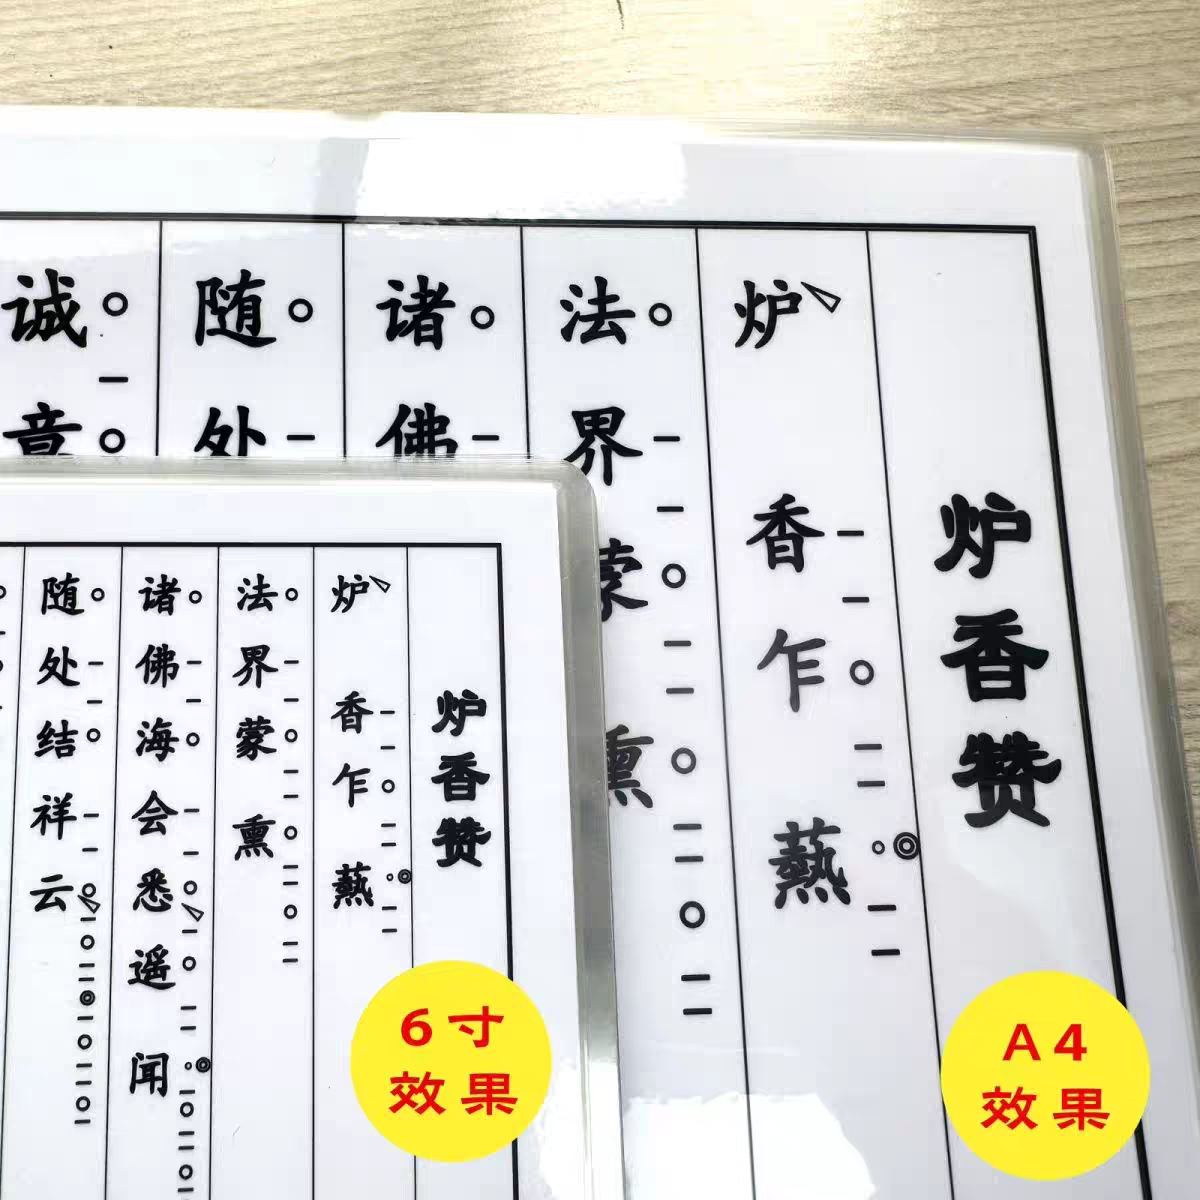 炉香赞
炉香乍爇
法界蒙熏
诸佛
随处
诚意
炉香赞
炉香乍爇
法界蒙熏
诸佛海会悉遥闻
随处结祥云
6寸
效果
A4
效果